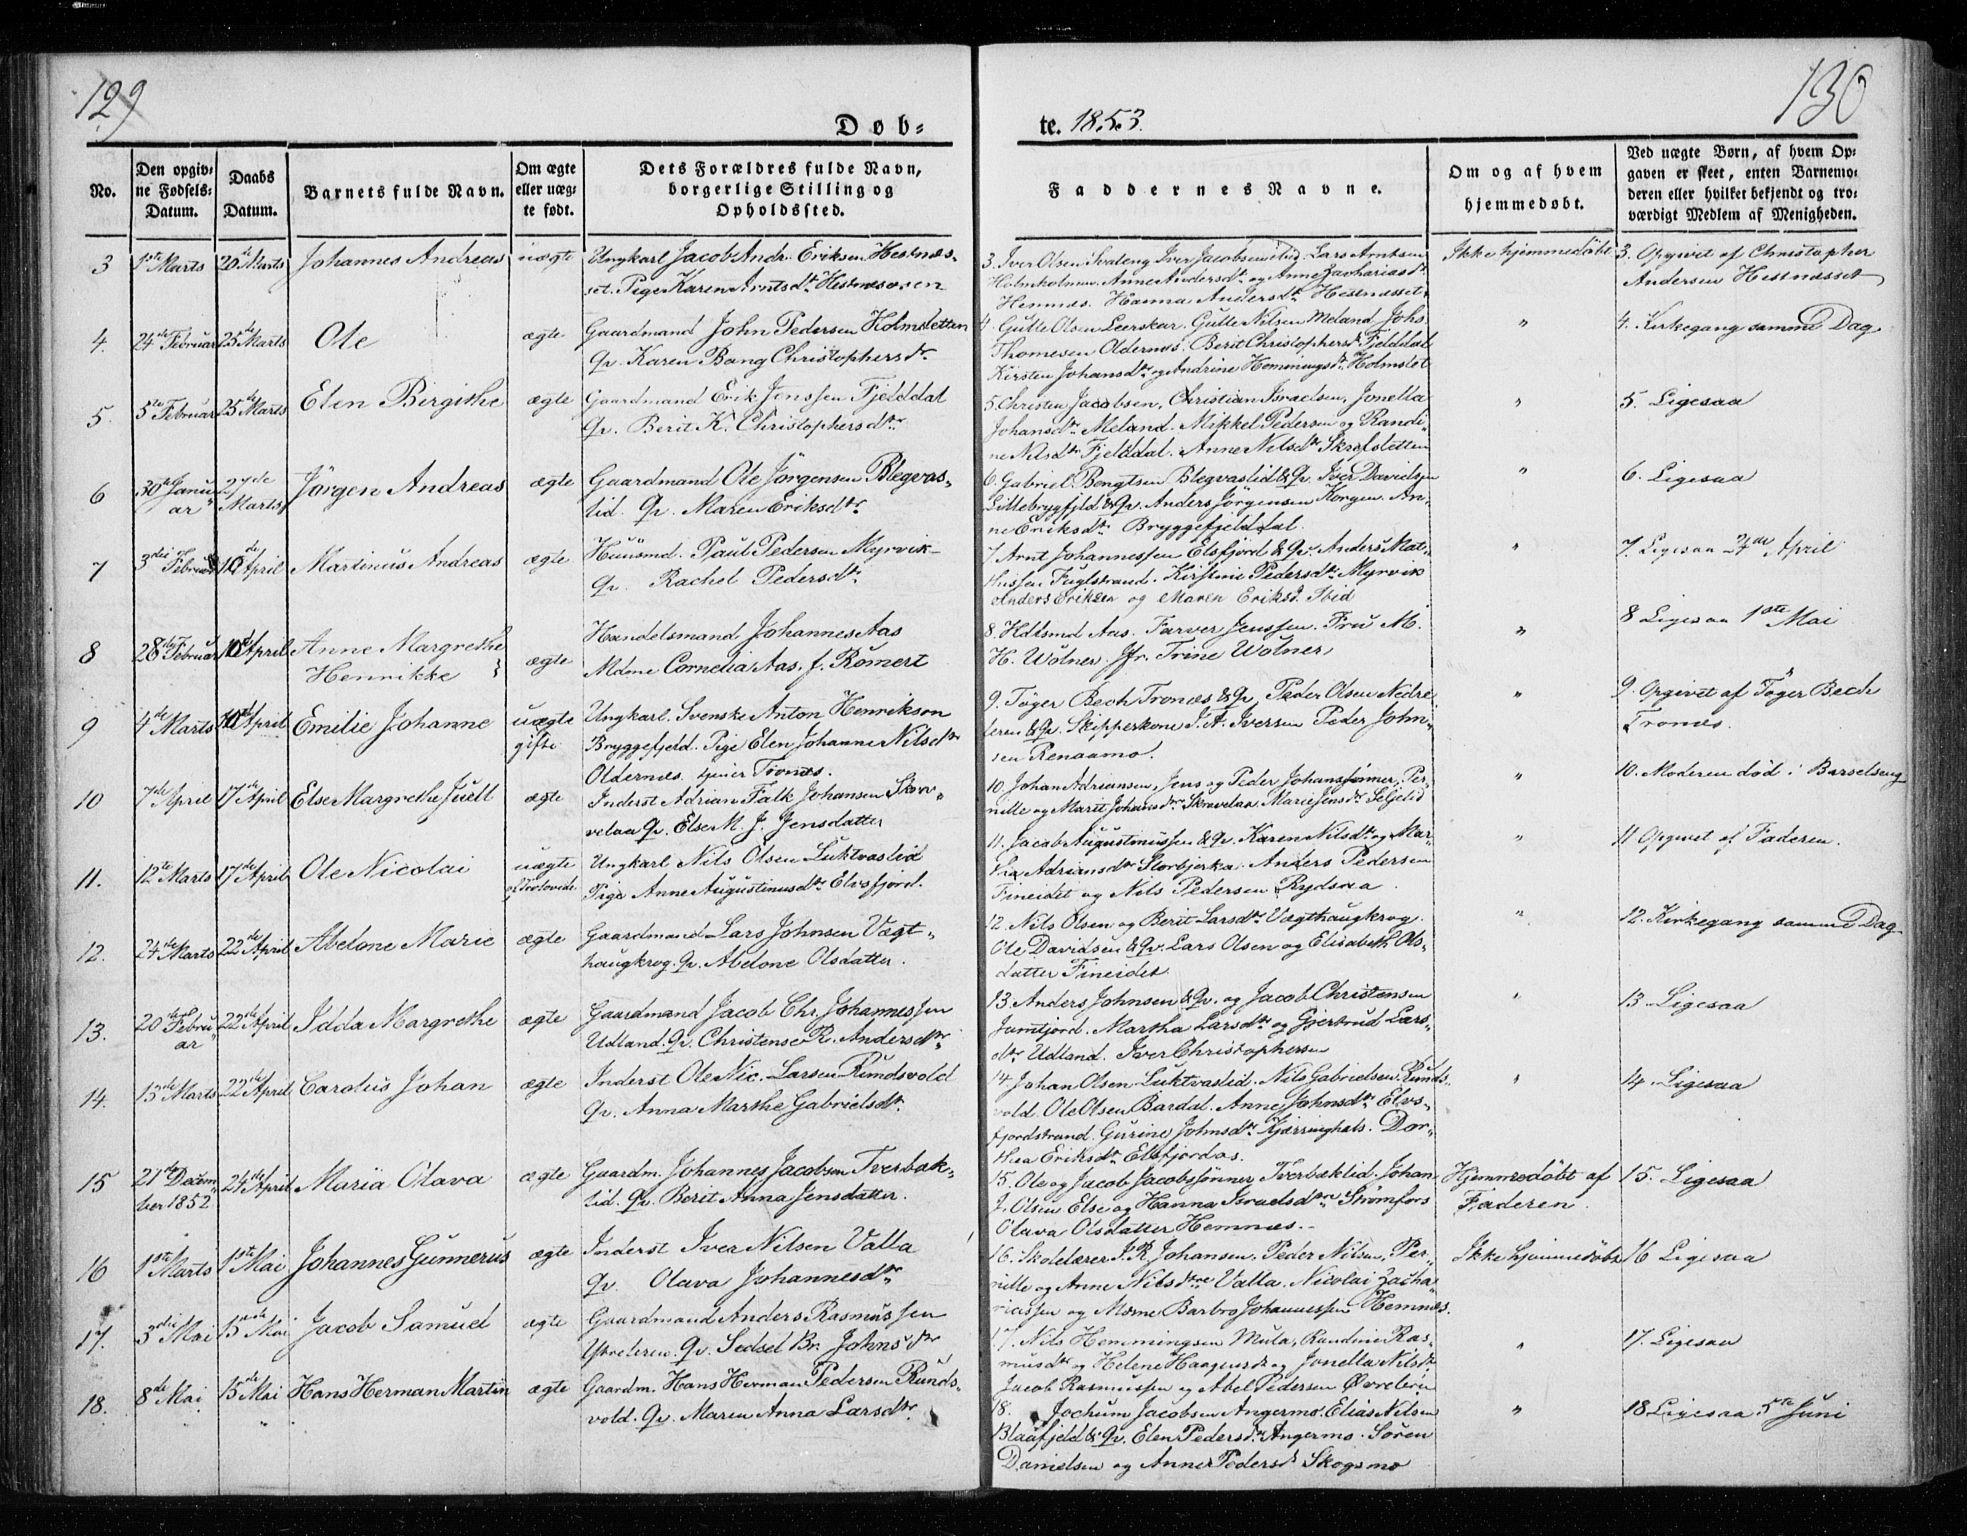 129
130
Døb-
te. 1853.
No.
Den opgiv-
ne Fødsels-
Datum.
Daabs
Datum.
Barnets fulde Navn.
Om ægte
eller uæg-
te født.
Dets Forældres fulde Navn,
borgerlige Stilling og
Opholdssted.
Faddernes Navne.
Om og af hvem
hjemmedøbt.
Ved uægte Børn, af hvem Op-
gaven er skeet, enten Barnemo-
deren eller hvilket bekjendt og tro-
værdigt Medlem af Menigheden.
3
1ste Marts
20de Marts
Johannes Andreas
uægte
Ungkarl Jacob Andr. Eriksen Hestnæs-
set. Pige Karen Arntsdtr Hestnæsosen
3. Iver Olsen Svaleng Iver Jacobsen ibid. Lars Arntsen
Holmholmen Anne Andersdtr og Anne Zachariasdtr
Hemnæs. Hanna Andersdtr Hestnæsset
Ikke hjemmedøbt
3. Opgivet af Christopher
Andersen Hestnæsset
4.
24de Februar
25de Marts
Ole
ægte
Gaardmand John Pedersen Holmsletten
Qv. Karen Bang Christophersdtr
4. Gutte Olsen Leerskar. Gutte Nilsen Meland Johs.
Thomesen Oldernæs. Berit Christophersdtr Fjelddal
Kirsten Johansdtr og Andrine Hemmingsdtr Holmslet
"
4. Kirkegang samme Dag
5.
5te Februar
25de Marts
Elen Birgithe
ægte
Gaardmand Erik Jenssen Fjelddal
Qv. Berit K. Christophersdtr
5. Christen Jacobsen, Christian Israelsen, Jonella
Johansdtr Meland. Mikkel Pedersen og Randi-
ne Nilsdtr Fjelddal. Anne Nilsdtr Skrofstetten
"
5. Ligesaa
6
30te Janu-
ar
27de
Marts
Jörgen Andreas
ægte
Gaardmand Ole Jörgensen Blegvas-
lid. Qv. Maren Eriksdtr
6. Gabriel Bengtsen Blegvaslid & Qv. Iver Davidsen
Lillebrygfjeld & Qv. Anders Jörgensen Korgen. An-
ne Eriksdtr Bryggefjelddal.
"
6. Ligesaa
7
3die Februar
10de April
Martinus Andreas
ægte
Huusmd. Paul Pedersen Myrvik
Qv. Rachel Pedersdtr
7 Arnt Johannessen Elsfjord & Qv. Anders Mat-
hissen Fuglstrand. Kirstine Pedersdtr Myrvik
Anders Eriksen og Maren Eriksd. Ibid
"
7. Ligesaa 24de April
8
28de Februar
10de April
Anne Margrethe
Henrikke
ægte
Handelsmand Johannes Aas
Mdme Cornelia Aas, f. Römert
8. Hdlsmd Aas. Farver Jenssen. Fru M.
H. Wolner. Jfr. Trine Wolner
"
8 Ligesaa 1ste Mai
9
4de Marts
10de April
Emilie Johanne
uægte
gifte
Ungkarl. Svenske Anton Henrikson
Bryggefjeld. Pige Elen Johanne Nilsdtr
Oldernes. tjener Tronæs.
9. Töger Bech Tronæs & Qv. Peder Olsen Nedre
leren & Qv. Skipperkone J. A. Iversen Peder John-
sen Renaamo.
"
9. Opgivet af Töger Bech
Tronæs.
10
7de April
17de April
Else Margrethe Juell
ægte
Inderst Adrian Falk Johansen Skra-
velaa Qv. Else M. J. Jensdatter
10. Johan Adriansen, Jens og Peder Johanssönner, Per-
nille og Marit Johansdtr Skravelaa Marie Jensdtr Seljelid
"
10. Moderen död i Barselseng
11.
12te Marts
17de April
Ole Nicolai
uægte
Trolovede
Ungkarl Nils Olsen Luktvaslid
Pige Anne Augustinusdtr Elvsfjord.
11. Jacob Augustinussen & Qv. Karen Nilsdtr og Mar-
tha Adriansdtr Storbjerka. Anders Pedersen
Fineidet og Nils Pedersen Rydsaa
"
11 Opgivet af Faderen.
12.
24de Marts
22de April
Abelone Marie
ægte
Gaardmand Lars Johnsen Vægt-
haugkrog. Qv. Abelone Olsdatter.
12. Nils Olsen og Berit Larsdtr Vægthaugkrog.
Ole Davidsen & Qv. Lars Olsen og Elisabeth Ols-
datter Fineidet
"
12. Kirkegang samme Dag
13.
20de Febru-
ar
22de April
Idda Margrethe
ægte
Gaardmand Jacob Chr. Johannessen
Udland. Qv. Christense R. Andersdtr
13. Anders Johnsen & Qv. og Jacob Christensen
Jamtjord. Martha Larsdtr og Gjertrud Lars-
dtr Udland. Iver Christophersen
"
13 Ligesaa
14.
13de Marts
22de April
Carolus Johan
ægte
Inderst Ole Nic. Larsen Rundsvold
Qv. Anna Marthe Gabrielsdtr
14 Johan Olsen Luktvaslid. Nils Gabrielsen Runds-
vold. Ole Olsen Bardal. Anne Johnsdtr Elvs-
fjordstrand. Gurine Johnsdtr Kjærringhals. Dor-
thea Eriksdtr Elsfjordas.
"
14. Ligesaa
15
21de Decem-
ber 1852
24de April
Maria Olava
ægte
Gaardm. Johannes Jacobsen Tverbæk-
lid. Qv. Berit Anna Jensdatter.
15. Ole og Jacob Jacobssönner Tverbæklid. Johan
J. Olsen Else og Hanna Israelsdtre Strømfors
Olava Olsdatter Hemnæs.
Hjemmedöbt af
Faderen.
15. Ligesaa
16
1ste Marts
1ste Mai
Johannes Gunnerus
ægte
Inderst Iver Nilsen Valla
Qv. Olava Johannesdtr
16. Skolelærer J. R. Johansen, Peder Nilsen, Per-
nille og Anne Nilsdtre Valla. Nicolai Zacha-
riassen og Mdme Barbro Johannessen Hemnæs.
Ikke hjemmedöbt
16 Ligesaa
17.
3die Mai
15de Mai
Jacob Samuel
ægte
Gaardmand Anders Rasmussen
Yttreleren. Qv. Sedsel Br. Johnsdtr
17. Nils Hemmingsen Mula, Randine Ras-
musdtr og Helene Haagensd. og Jonella Nilsdtr
Jacob Rasmussen og Abel Pedersen Øvreleren
"
17. Ligesaa
18.
8de Mai
15de Mai
Hans Herman Martin
ægte
Gaardm. Hans Herman Pedersen Runds-
vold. Qv. Maren Anna Larsdtr.
18. Jochum Jacobsen Angermo. Elias Nilsen
Blaafjeld & Qv. Elen Pedersdtr Angermo. Sören
Danielsen og Anne Pedersd. Skogsmo
"
18 Ligesaa 5te Juni